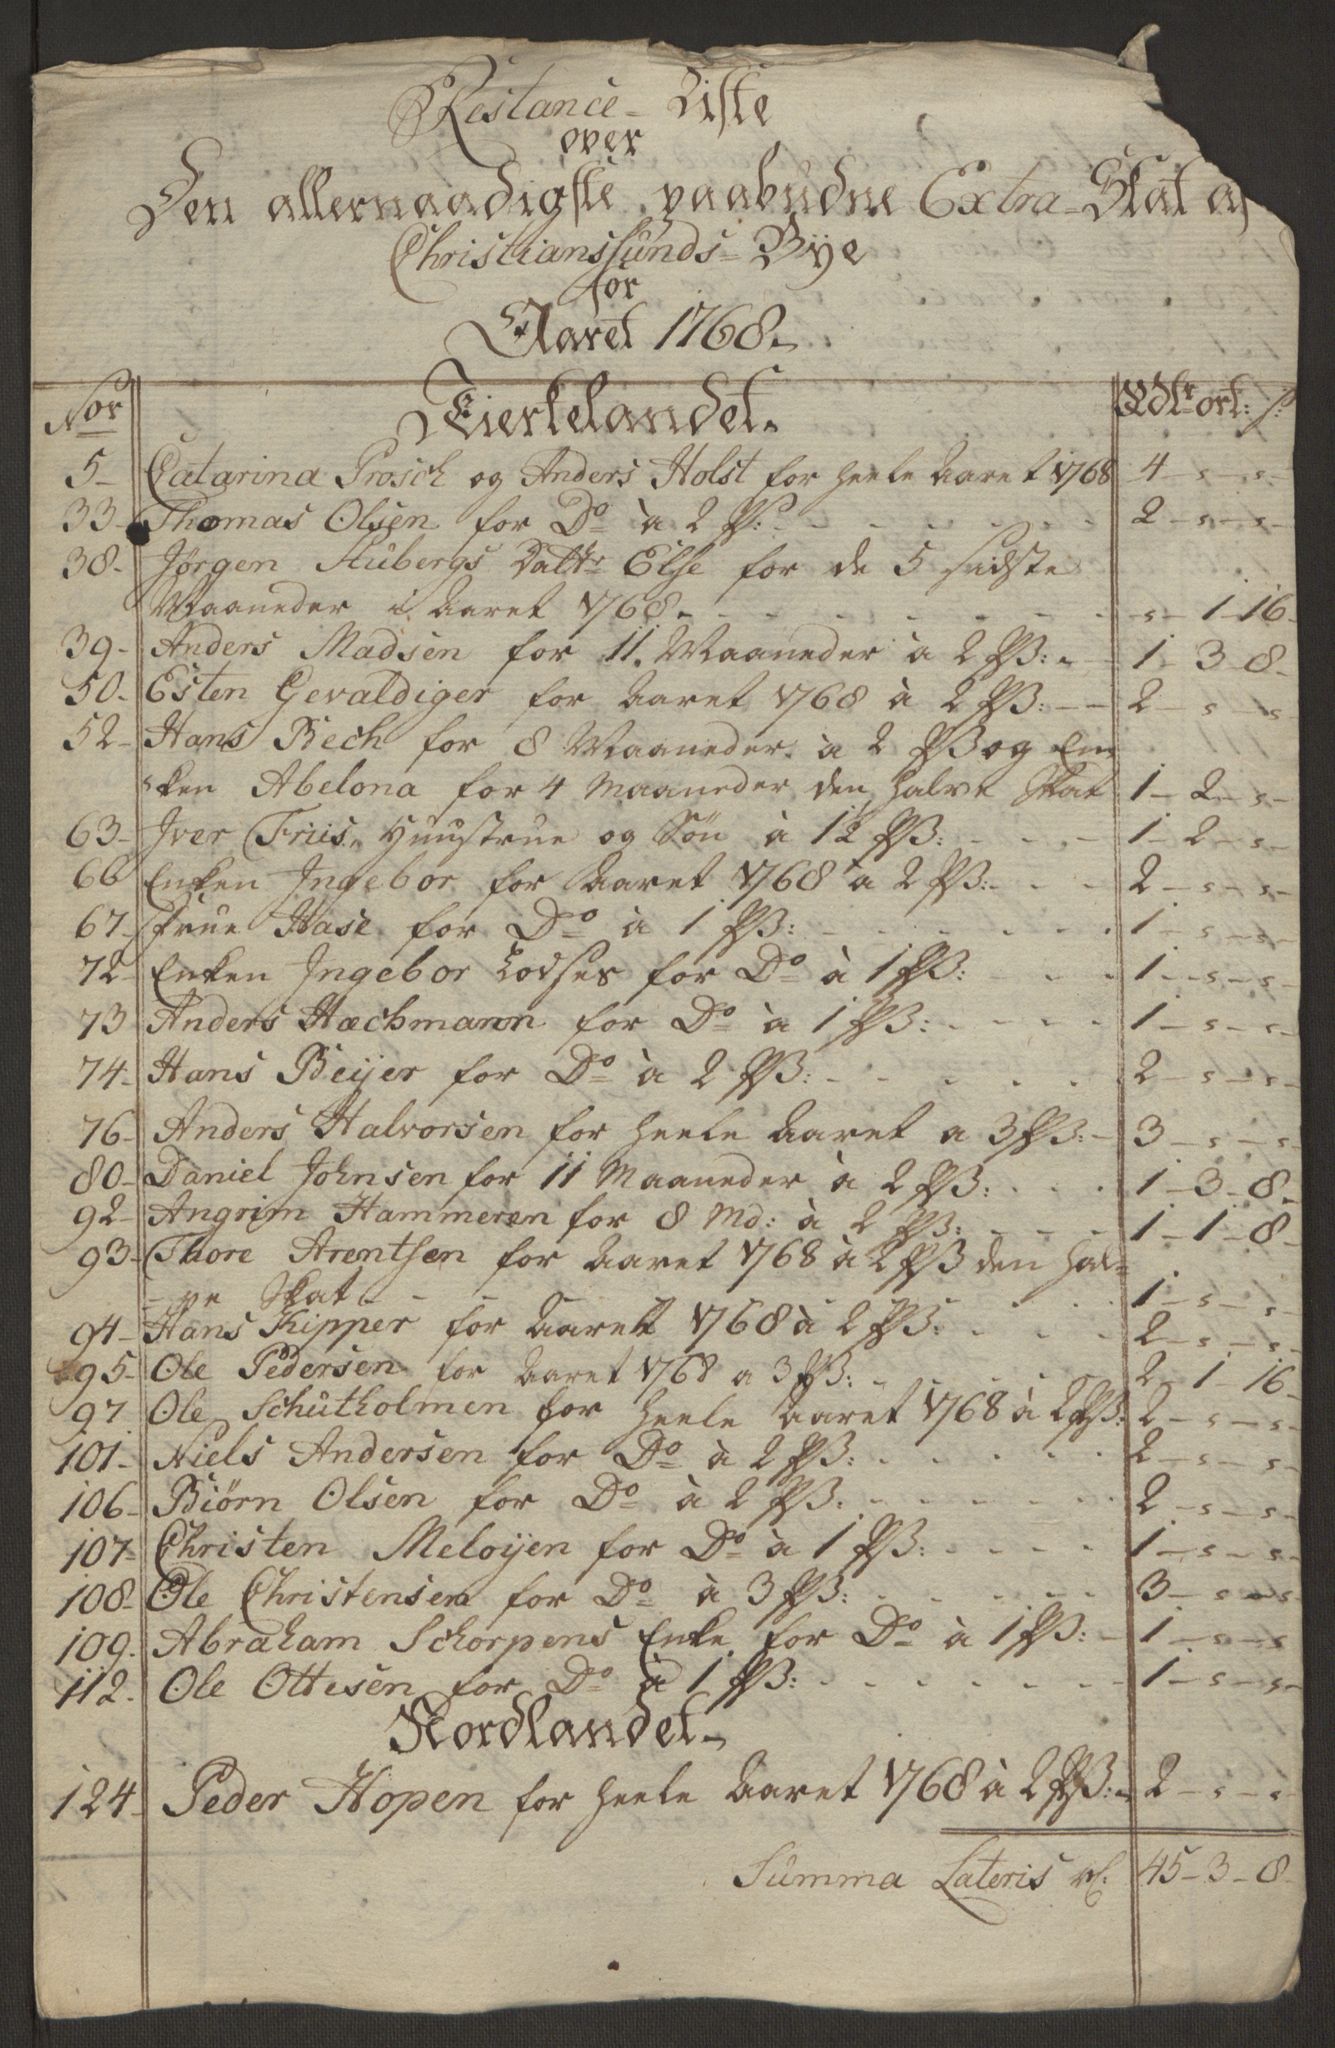 Restance-Liste
over
Den allernaadigste paabudne Extra-Skat af
Christianssunds-Bye
for
Aaret 1768.
Nor Kierkelandet. Rdlr ort: s:
5 Catarina Prosch og Anders Holst for heele Aaret 1768 4 - s - s -
33 Thomas Olsen for Do à 2 Ps: 2 - s - s -
38 Jørgen Stubergs Dattr Else for de 5 sidste
Maaneder i Aaret 1768 s - 1 - 16
39 Anders Madsen for 11 Maaneder à 2 Ps: 1 - 3 - 8
50 Esten Gevaldiger for Aaret 1768 à 2 Ps: 2 - s - s
52 Hans Bech for 8 Maaneder à 2 Ps og En=
=ken Abelona for 4 Maaneder den halve Skat 1 - 2 - s -
63 Iver Friis, Huustrue og Søn à 12 Ps: 1 - 2 - s -
66 Enken Ingebor for Aaret 1768 à 2 Ps: 2 - s - s -
67 Frue Hase for Do à 1 Ps: 1 - s - s -
72 Enken Ingebor Lodses for Do à 1 Ps: 1 - s - s -
73 Anders Hachmann for Do à 1 Ps: 1 - s - s -
74 Hans Beijer for Do à 2 Ps: 2 - s - s -
76 Anders Halvorsen for heele Aaret a 3 Ps: 3 - s - s
80 Daniel Johnsen for 11 Maaneder à 2 Ps: 1 - 3 - 8
92 Angrim Hammeren for 8 Md: à 2 Ps: 1 - 1 - 8
93 Thore Arentsen for Aaret 1768 à 2 Ps den hal=
=ve Skat 1 - s - s -
94 Hans Kipper for Aaret 1768 à 2 Ps: 2 - s - s -
95 Ole Pedersen for Aaret 1768 a 3 Ps: 2 - 1 - 16
97 Ole Schutholmen for heele Aaret 1768 à 2 Ps: 2 - s - s -
101 Niels Andersen for Do à 2 Ps: 2 - s - s -
106 Biörn Olsen for Do à 2 Ps: 2 - s - s -
107 Christen Meloijen for Do à 1 Ps: 1 - s - s -
108 Ole Christensen for Do à 3 Ps: 3 - s - s
109 Abraham Schorpens Enke for Do à 1 Ps: 1 - s - s
112 Ole Ottesen for Do à 1 Ps: 1 - s - s -
Nordlandet
124 Peder Hopen for heele Aaret 1768 à 2 Ps: 2 - s - s
Summa Lateris 45 - 3 - 8